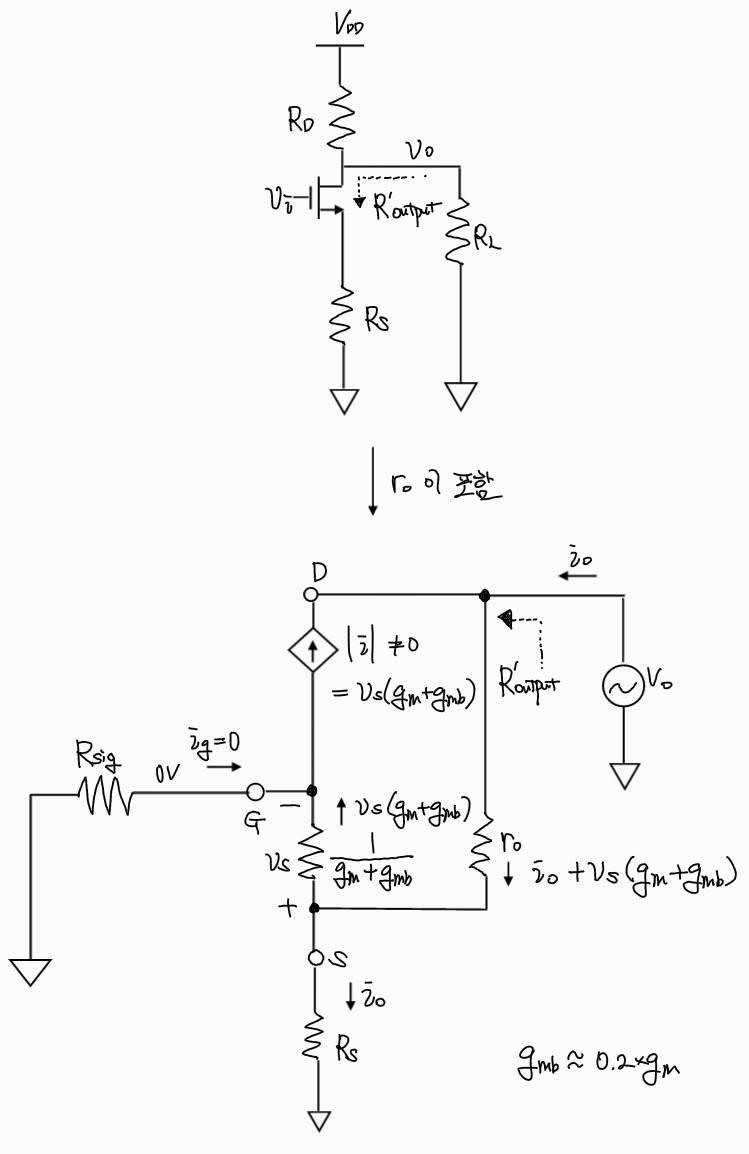 V_DD
R_D
v_o
v_i
R'output
R_L
R_S
r_o 이 포함
i_o
D
|i| ≠0
= v_s(g_m+g_mb)
R'output
v_o
R_sig
0V
i_g=0
G
−
v_s(g_m+g_mb)
r_o
v_s
1/(g_m+g_mb)
i_o +v_s (g_m+g_mb)
+
S
i_o
R_S
g_mb ≈ 0.2×g_m